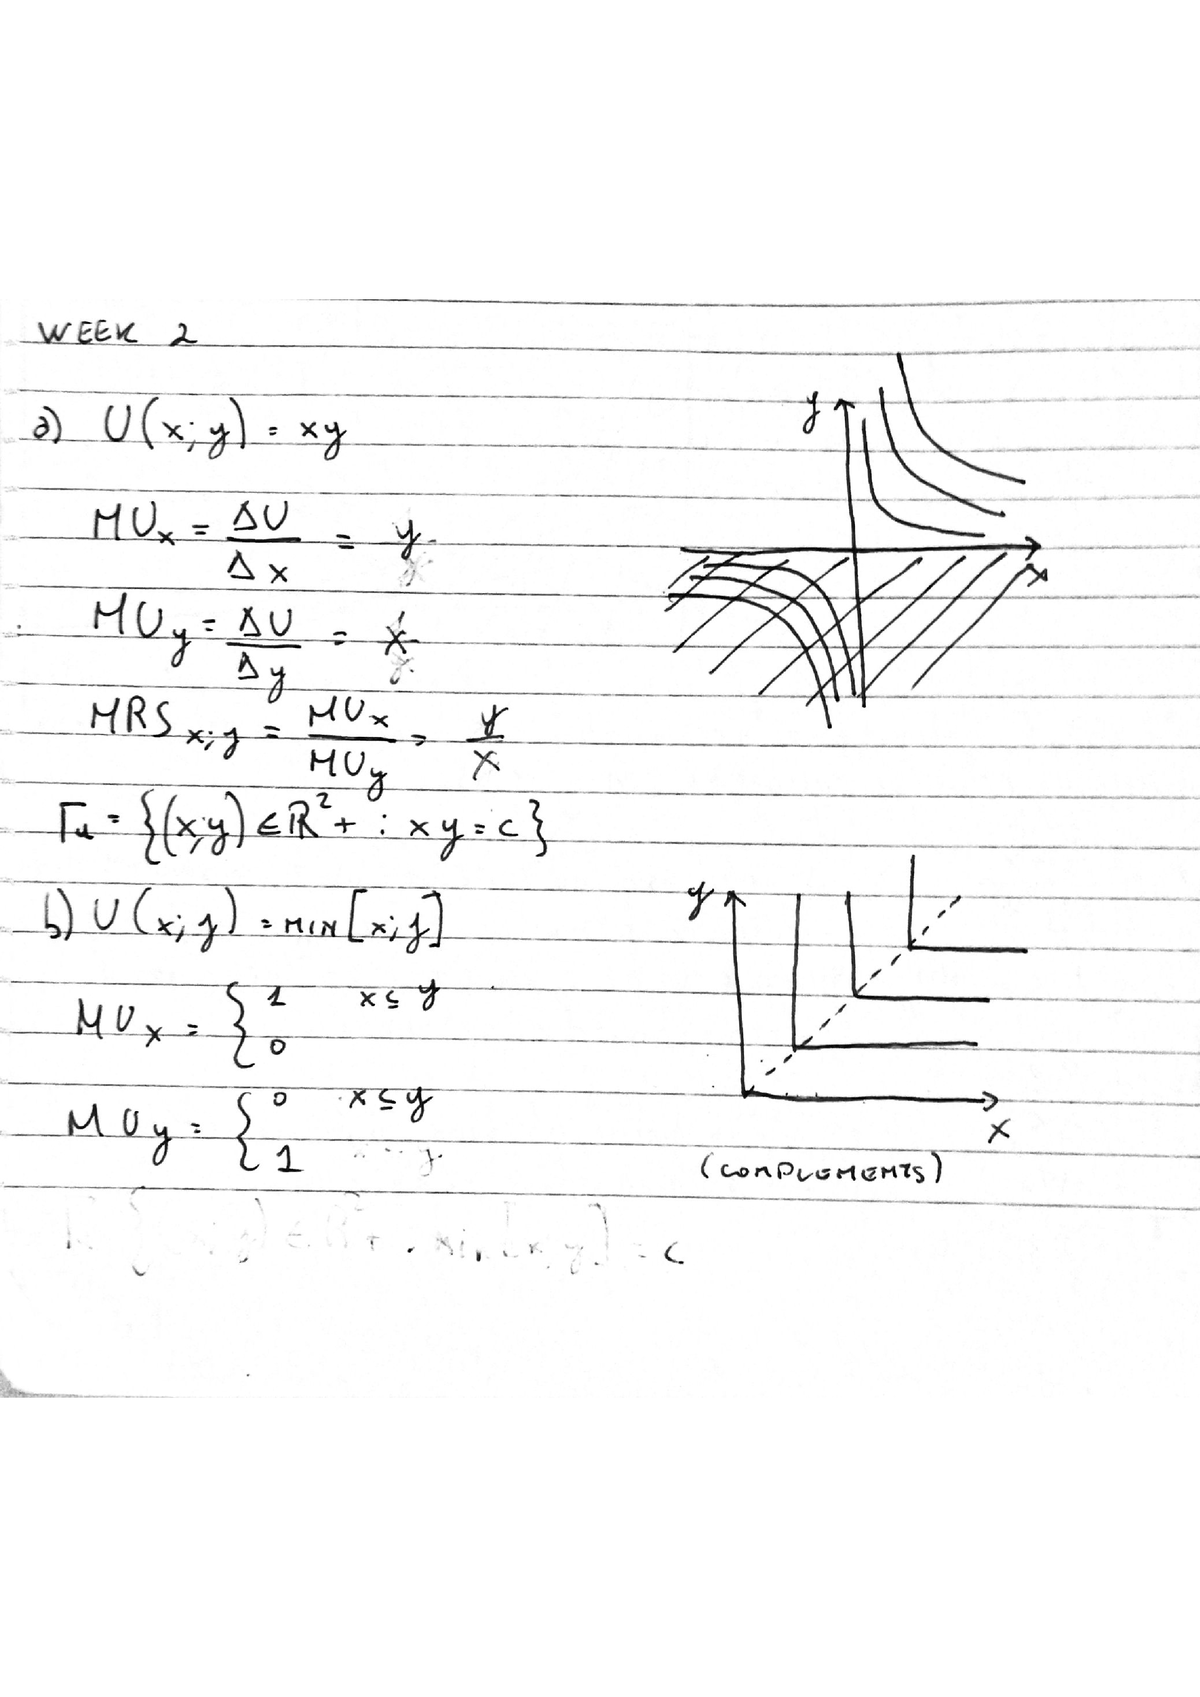 WEEK 2
a) U(x; y) = xy
MUx = ΔU/Δx = y
MUy = ΔU/Δy = x
MRS x;y = MUx/MUy = y/x
Γu = {(x;y) ∈ ℝ²+ : xy = c}
b) U(x; y) = MIN[x; y]
MUx = { 1 x ≤ y
0
MUy = { 0 x ≤ y
1
y
x
y
x
(COMPLEMENTS)